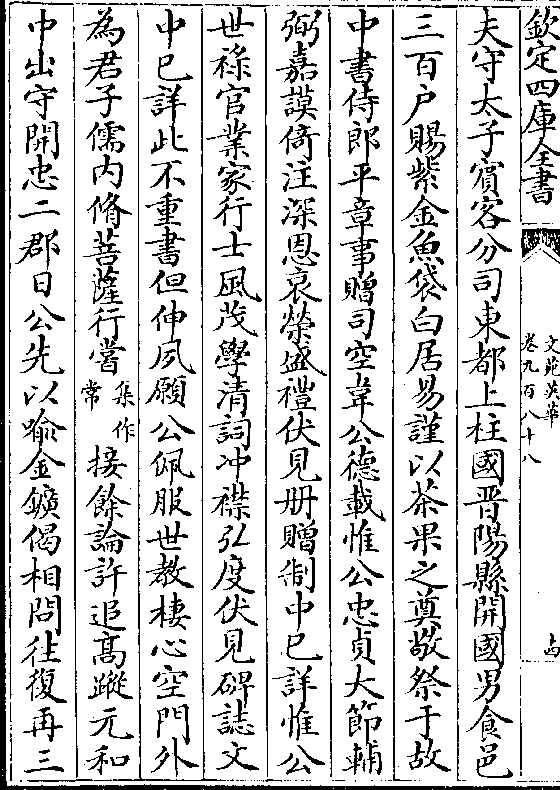 欽定四庫全書
文苑英華
卷九百八十八
夫守太子賔客分司東都上柱國晋陽縣開國男食邑
三百户賜紫金魚袋白居易謹以茶果之奠敬祭于故
中書侍郎平章事贈司空韋公德載惟公忠貞大節輔
弼嘉謨倚注深恩哀榮盛禮伏見册贈制中已詳惟公
世祿官業家行士風茂學清詞冲襟弘度伏見碑誌文
中已詳此不重書但伸夙願公佩服世教棲心空門外
為君子儒内脩菩薩行嘗集作常接餘論許追高蹤元和
中出守開忠二郡日公先以喻金鑛偈相問往復再三